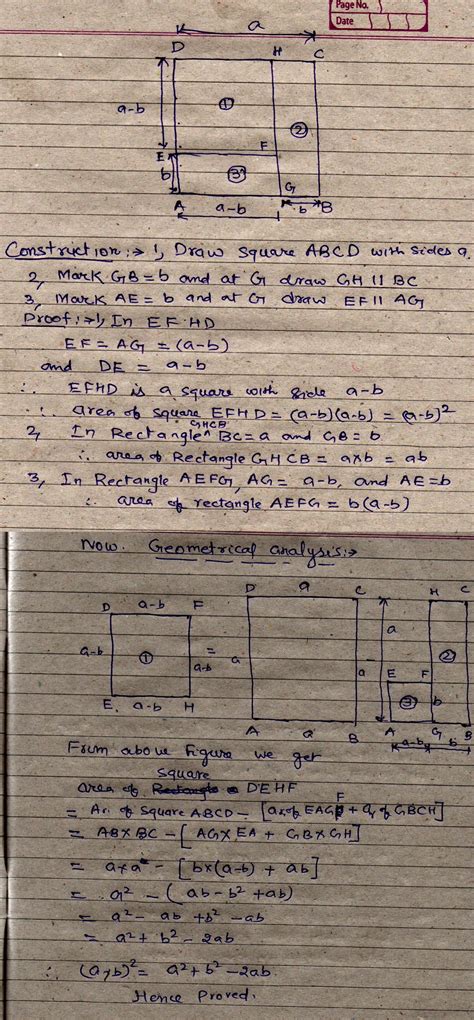 Page No.
Date
a
D H C
a-b
①
②
E F
b
③
G
A a-b b B
Construction :→ 1, Draw square ABCD with sides a.
2, Mark GB = b and at G draw GH || BC
3, Mark AE = b and at G draw EF || AG
Proof :→ 1, In EFHD
EF = AG = (a-b)
and DE = a-b
∴ EFHD is a square with side a-b
∴ area of square EFHD = (a-b)(a-b) = (a-b)²
2, In Rectangle GHCB BC = a and GB = b
∴ area of Rectangle GHCB = a×b = ab
3, In Rectangle AEFG, AG = a-b, and AE = b
∴ area of rectangle AEFG = b(a-b)
Now. Geometrical analysis :→
D a-b F
a-b ① a-b
E. a-b H
=
D a C
a a
A a B
—
H C
a
②
E F
③ b
A G B
a-b b
From above figure we get
area of Rectangle square DEHF
= Ar. of Square ABCD - [ar of EAGF + ar of GBCH]
= AB × BC - [AG × EA + GB × GH]
= a×a - [b×(a-b) + ab]
= a² - (ab - b² + ab)
= a² - ab + b² - ab
= a² + b² - 2ab
∴ (a-b)² = a² + b² - 2ab.
Hence Proved.